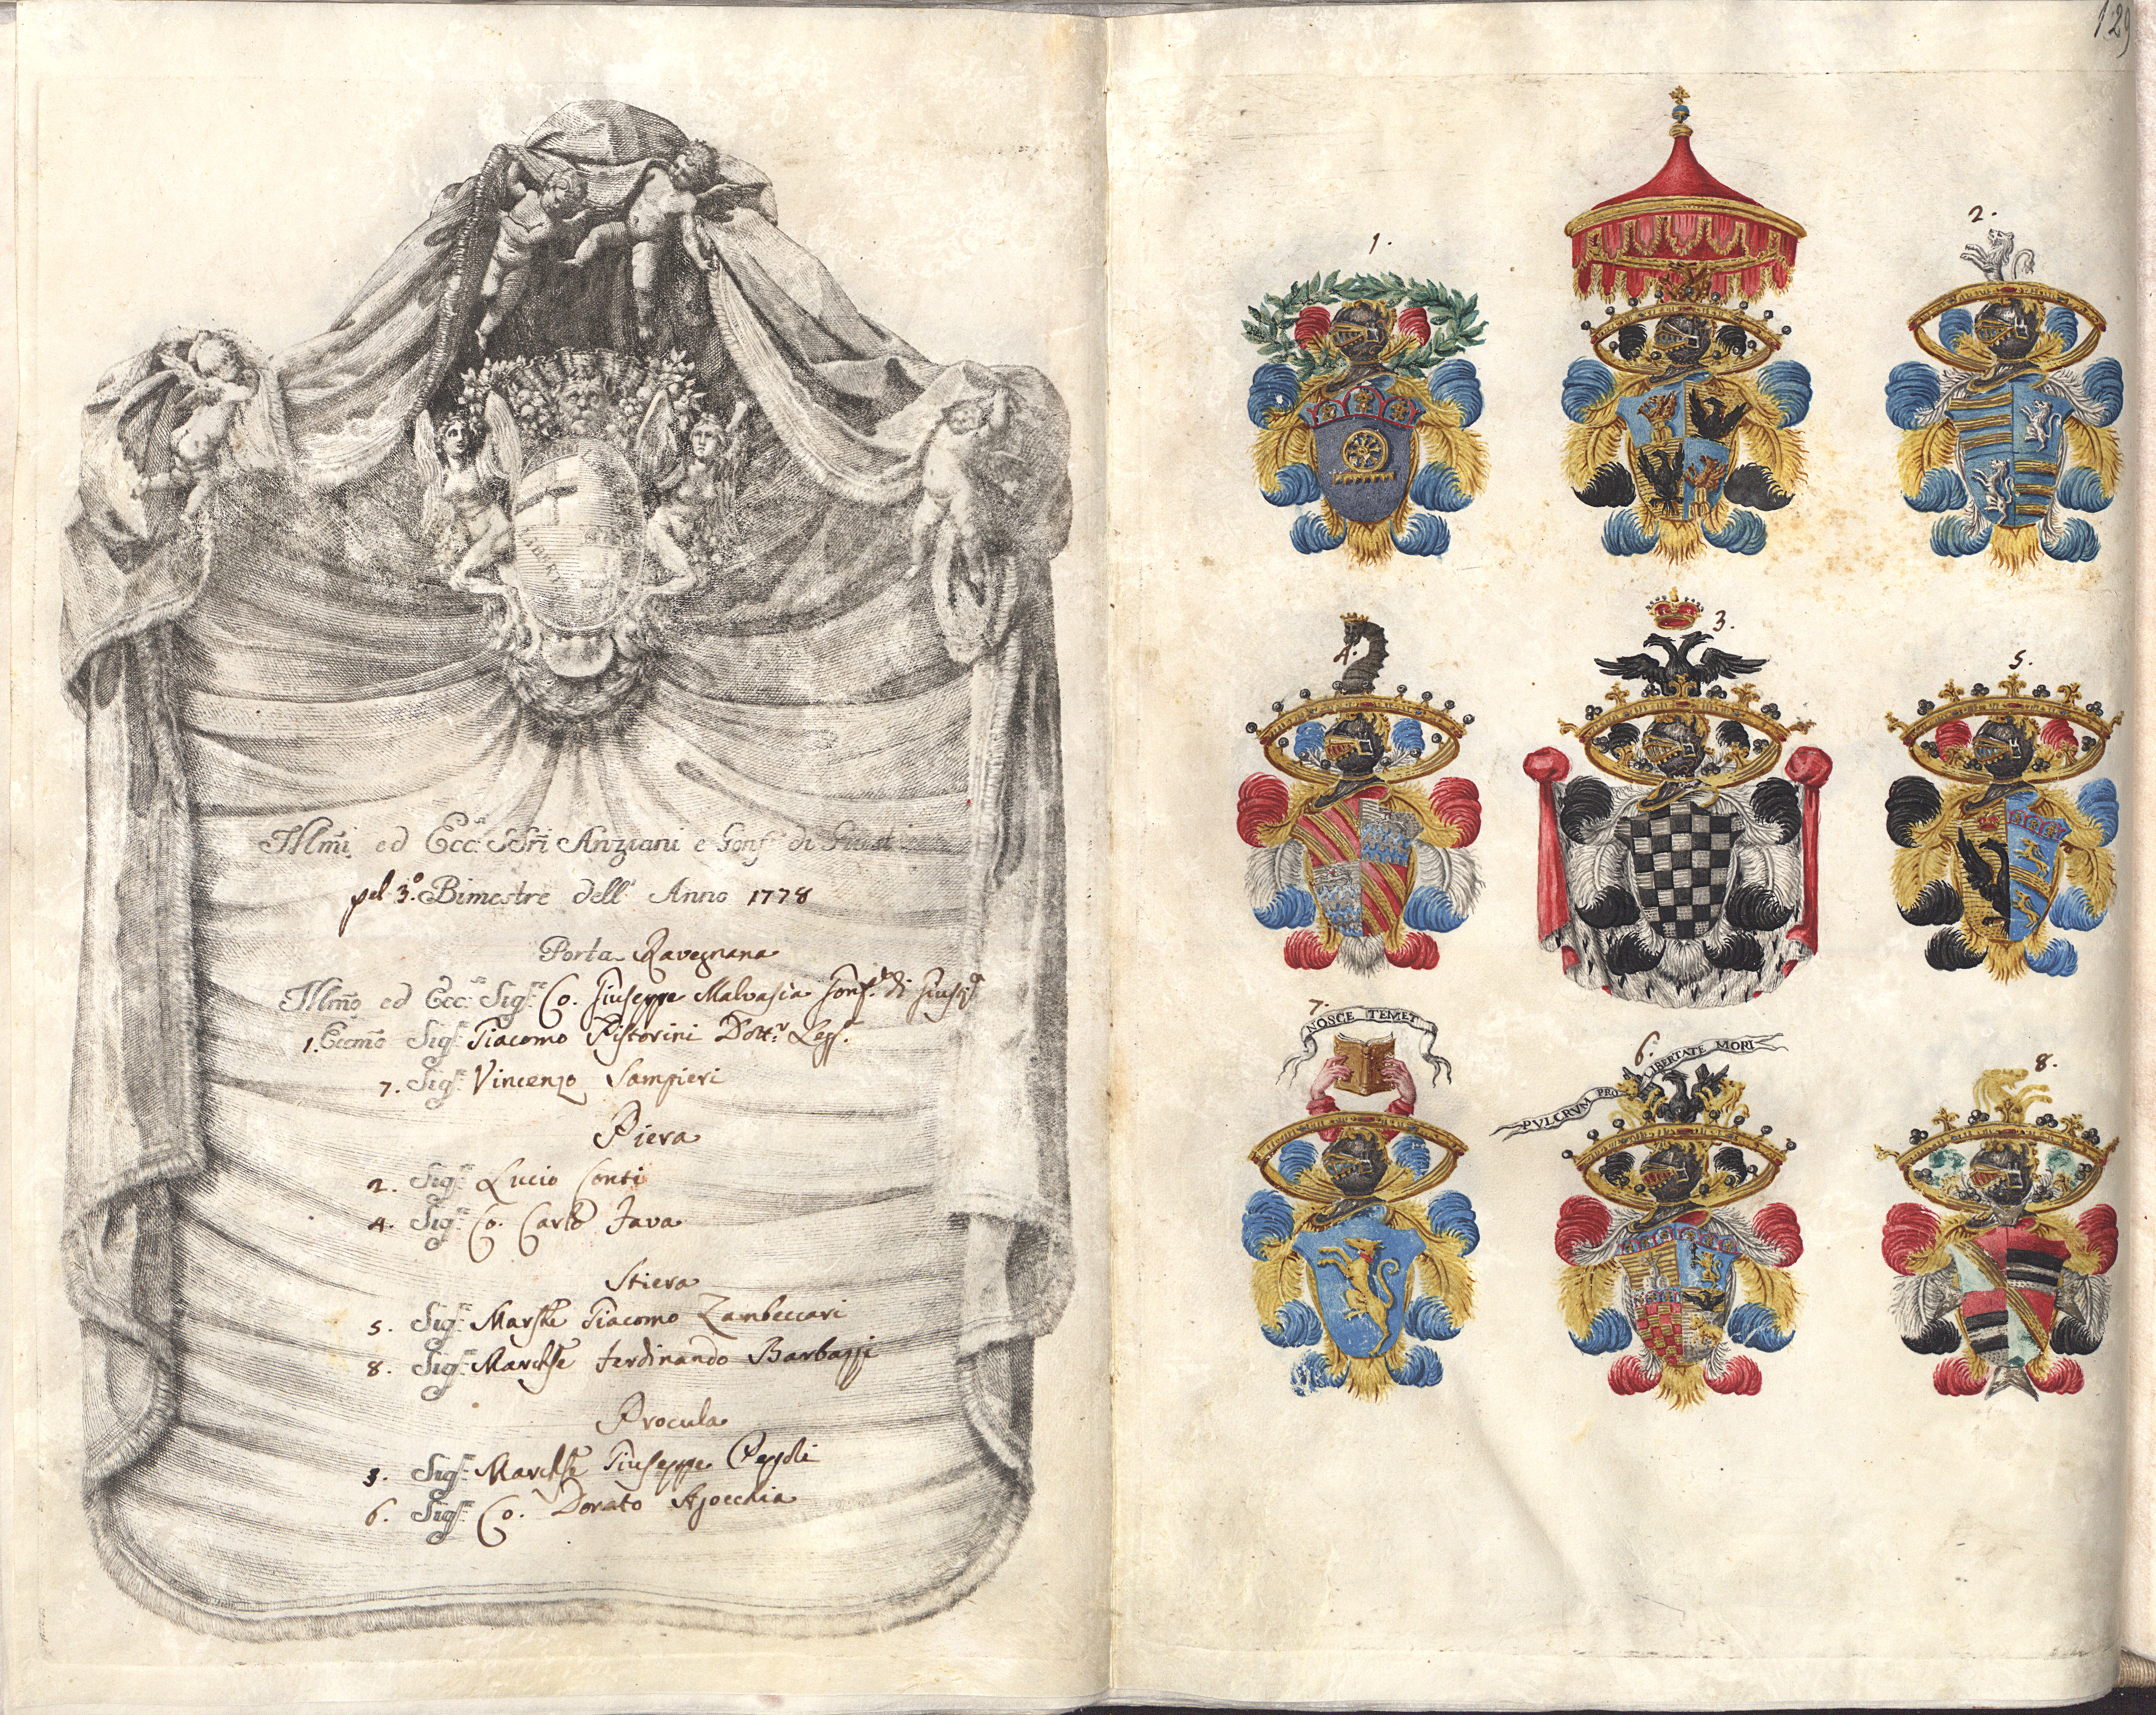 LIBERTAS
Illm̃i ed Ecc.si SSri Anziani e Gonf.re di Giust
pel 3.º Bimestre dell' Anno 1778
Porta Ravegnana
Illm̃o ed Ecc.so Sig.re Co. Giuseppe Malvasia Gonf.re di Giust.a
1. Eccm̃o Sig.r Giacomo Pistorini Dott.r Leg.
7. Sig.r Vincenzo Sampieri
Piera
2. Sig.r Lucio Conti
4. Sig.r Co. Carlo Fava
Stiera
5. Sig.r March.e Giacomo Zambeccari
8. Sig.r March.e Ferdinando Barbazzi
Procula
3. Sig.r March.e Giuseppe Pepoli
6. Sig.r Co. Donato Ajocchia
129
1.
2.
4.
3.
5.
7.
NOSCE TEMET
6.
PVLCRVM PRO LIBERTATE MORI
8.